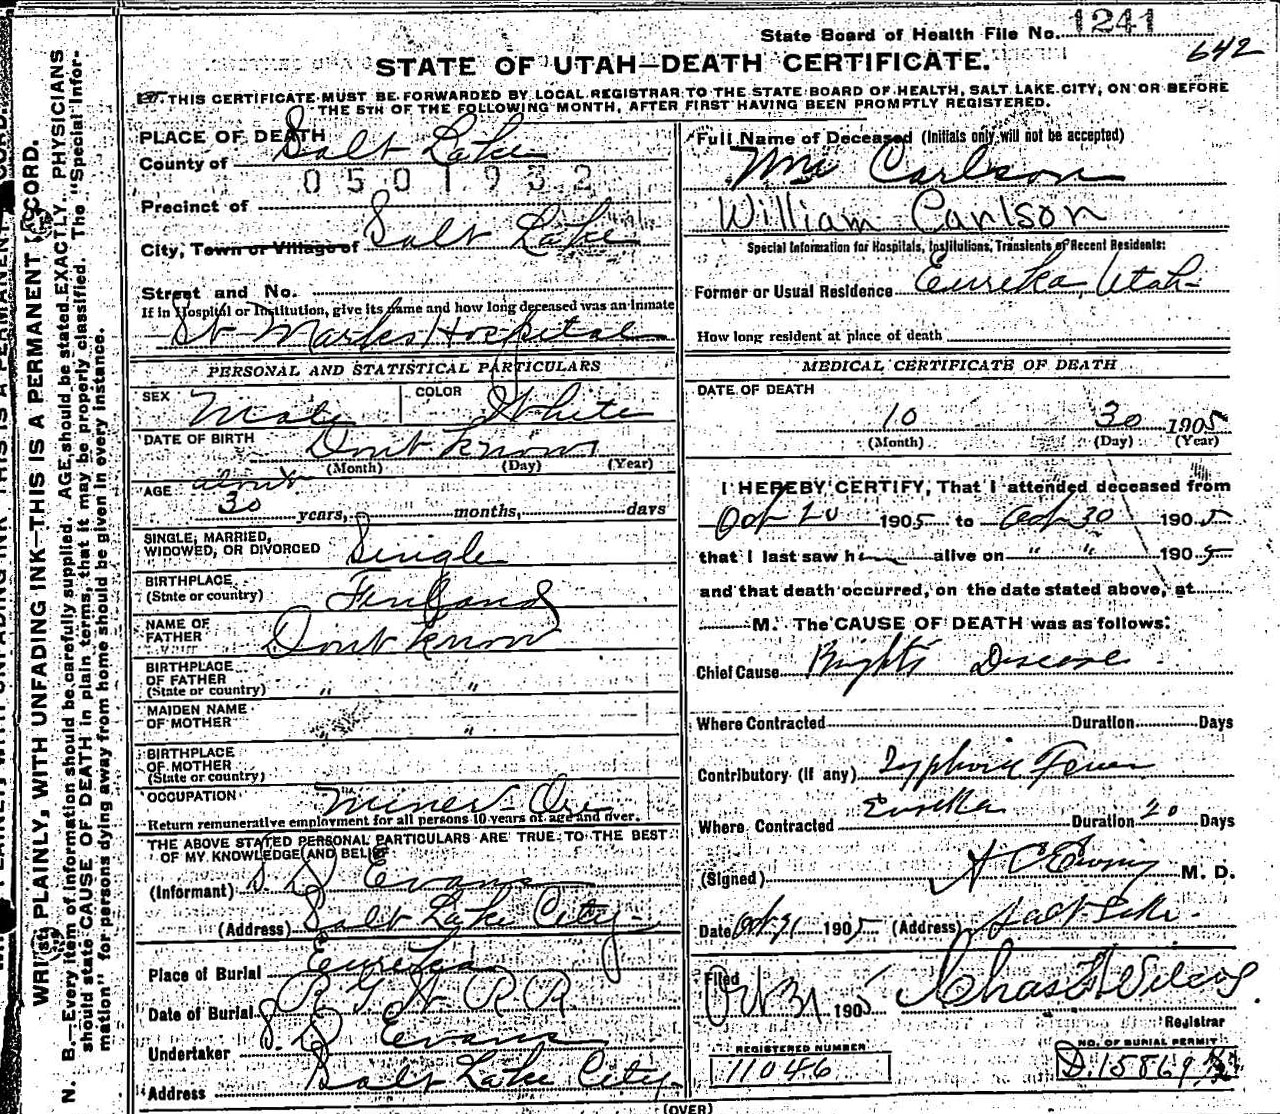 State Board of Health File No. 1241
642
STATE OF UTAH—DEATH CERTIFICATE.
THIS CERTIFICATE MUST BE FORWARDED BY LOCAL REGISTRAR TO THE STATE BOARD OF HEALTH, SALT LAKE CITY, ON OR BEFORE
THE 5TH OF THE FOLLOWING MONTH, AFTER FIRST HAVING BEEN PROMPTLY REGISTERED.
PLACE OF DEATH
County of Salt Lake
0501932
Precinct of
City, Town or Village of Salt Lake
Street and No.
If in Hospital or Institution, give its name and how long deceased was an inmate
St Marks Hospital
PERSONAL AND STATISTICAL PARTICULARS
SEX Male COLOR White
DATE OF BIRTH Dont know
(Month) (Day) (Year)
AGE about
30 years, months, days
SINGLE, MARRIED,
WIDOWED, OR DIVORCED Single
BIRTHPLACE
(State or country) Finland
NAME OF
FATHER Dont know
BIRTHPLACE
OF FATHER
(State or country) " "
MAIDEN NAME
OF MOTHER " "
BIRTHPLACE
OF MOTHER
(State or country)
OCCUPATION Miner - Ore
Return remunerative employment for all persons 10 years of age and over.
THE ABOVE STATED PERSONAL PARTICULARS ARE TRUE TO THE BEST
OF MY KNOWLEDGE AND BELIEF
(Informant) S D Evans
(Address) Salt Lake City
Place of Burial Eureka
Date of Burial R G W R R
Undertaker S. D. Evans
Address Salt Lake City
(OVER)
Full Name of Deceased (Initials only will not be accepted)
Wm Carlson
William Carlson
Special Information for Hospitals, Institutions, Transients or Recent Residents:
Former or Usual Residence Eureka, Utah
How long resident at place of death
MEDICAL CERTIFICATE OF DEATH
DATE OF DEATH
10 30 1905
(Month) (Day) (Year)
I HEREBY CERTIFY, That I attended deceased from
Oct 20 1905 to Oct 30 1905
that I last saw h alive on " " 1905
and that death occurred, on the date stated above, at
M. The CAUSE OF DEATH was as follows:
Chief Cause Brights Disease
Where Contracted Duration Days
Contributory (if any) Typhoid Fever
Where Contracted Eureka Duration 20 Days
(Signed) M. D.
Date Oct 31 1905 (Address) Salt Lake
Filed Oct 31 1905 Chas
Registrar
REGISTERED NUMBER
11046
NO. OF BURIAL PERMIT
D.15869
WRITE PLAINLY, WITH UNFADING INK—THIS IS A PERMANENT RECORD.
N. B.—Every item of information should be carefully supplied. AGE should be stated EXACTLY. PHYSICIANS
should state CAUSE OF DEATH in plain terms, that it may be properly classified. The "Special Infor-
mation" for persons dying away from home should be given in every instance.